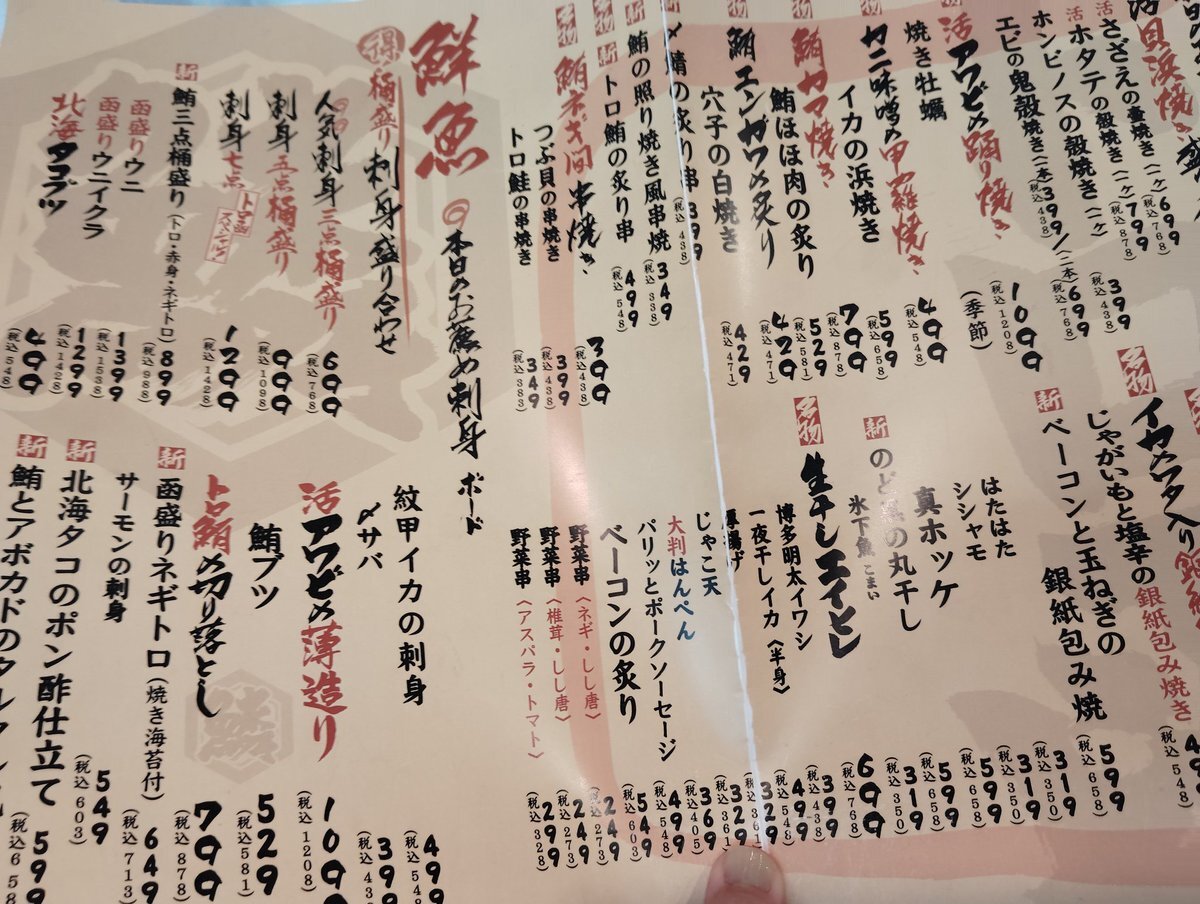 貝浜焼き
活 さざえの壷焼き(一ケ)699(税込768)
活 ホタテの殻焼き(一ケ)799(税込878)
ホンビノスの殻焼き(二ケ)399(税込438)
エビの鬼殻焼き(一本)399(税込438)/(二本)699(税込768)
活アワビの踊り焼き 1099(税込1208)
焼き牡蠣(季節)
カニ味噌の甲羅焼き 499(税込548)
イカの浜焼き 599(税込658)
名物 鮪カマ焼き 799(税込878)
鮪ほほ肉の炙り 529(税込581)
名物 鮪エンガワの炙り 429(税込471)
穴子の白焼き 429(税込471)
〆鯖の炙り串 399(税込438)
新 鮪の照り焼き風串焼 349(税込338)
名物 新 トロ鮪の炙り串 499(税込548)
名物 鮪ネギ間串焼き 399(税込438)
つぶ貝の串焼き 399(税込438)
トロ鮭の串焼き 349(税込383)
イカワタ入り
名物 じゃがいもと塩辛の銀紙包み焼き(税込548)
新 ベーコンと玉ねぎの銀紙包み焼 599(税込658)
はたはた 319(税込350)
シシャモ 319(税込350)
真ホッケ 599(税込658)
新 のど黒の丸干し 599(税込658)
氷下魚こまい 319(税込350)
名物 生干しエイヒレ 699(税込768)
博多明太イワシ 399(税込438)
一夜干しイカ〈半身〉 499(税込548)
厚揚げ 329(税込361)
じゃこ天 329(税込361)
大判はんぺん 369(税込405)
パリッとポークソーセージ 499(税込548)
ベーコンの炙り 549(税込603)
野菜串〈ネギ・しし唐〉 249(税込273)
野菜串〈椎茸・しし唐〉 249(税込273)
野菜串〈アスパラ・トマト〉 299(税込328)
鮮魚 本日のお薦め刺身 ボード
得 桶盛り 刺身盛り合わせ
人気刺身 三点桶盛り 699(税込768)
刺身 五点桶盛り 999(税込1098)
刺身 七点 トロ函スペシャル 1299(税込1428)
新 鮪三点桶盛り(トロ・赤身・ネギトロ)899(税込988)
函盛りウニ 1399(税込1538)
函盛りウニイクラ 1299(税込1428)
北海タコブツ 499(税込548)
紋甲イカの刺身 499(税込548
〆サバ 399
活アワビの薄造り 109(税込1208)
鮪ブツ 529(税込581)
トロ鮪の切り落とし 799(税込878)
新 函盛りネギトロ(焼き海苔付) 649(税込713)
サーモンの刺身 549(税込603)
新 北海タコのポン酢仕立て 599(税込658
新 鮪とアボカドのタルタル